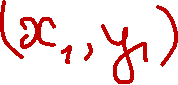 (x₁, y₁)